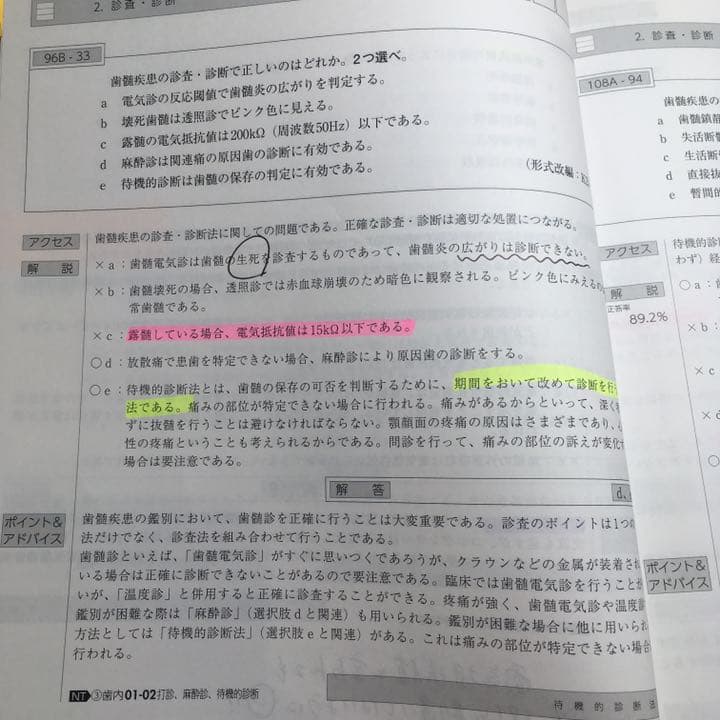 2. 診査・診断
96B-33
歯髄疾患の診査・診断で正しいのはどれか。2つ選べ。
a 電気診の反応閾値で歯髄炎の広がりを判定する。
b 壊死歯髄は透照診でピンク色に見える。
c 露髄の電気抵抗値は200kΩ(周波数50Hz)以下である。
d 麻酔診は関連痛の原因歯の診断に有効である。
e 待機的診断は歯髄の保存の判定に有効である。
(形式改編:
アクセス
歯髄疾患の診査・診断法に関しての問題である。正確な診査・診断は適切な処置につながる。
解説
×a:歯髄電気診は歯髄の生死を診査するものであって、歯髄炎の広がりは診断できない。
×b:歯髄壊死の場合、透照診では赤血球崩壊のため暗色に観察される。ピンク色にみえるの
常歯髄である。
×c:露髄している場合、電気抵抗値は15kΩ以下である。
○d:放散痛で患歯を特定できない場合、麻酔診により原因歯の診断をする。
○e:待機的診断法とは、歯髄の保存の可否を判断するために、期間をおいて改めて診断を行
法である。痛みの部位が特定できない場合に行われる。痛みがあるからといって、深く
ずに抜髄を行うことは避けなければならない。顎顔面の疼痛の原因はさまざまであり、
性の疼痛ということも考えられるからである。問診を行って、痛みの部位の訴えが変化
場合は要注意である。
解答
d,
ポイント&
アドバイス
歯髄疾患の鑑別において、歯髄診を正確に行うことは大変重要である。診査のポイントは1つの
法だけでなく、診査法を組み合わせて行うことである。
歯髄診といえば、「歯髄電気診」がすぐに思いつくであろうが、クラウンなどの金属が装着され
いる場合は正確に診断できないことがあるので要注意である。臨床では歯髄電気診を行うことが
いが、「温度診」と併用すると正確に診査することができる。疼痛が強く、歯髄電気診や温度診
鑑別が困難な際は「麻酔診」(選択肢dと関連)も用いられる。鑑別が困難な場合に他に用いられ
方法としては「待機的診断法」(選択肢eと関連)がある。これは痛みの部位が特定できない場合
行われる。
NT ③歯内01-02打診、麻酔診、待機的診断
待機的診断法
2. 診査・診断
108A-94
歯髄疾患の
a 歯髄鎮静
b 失活断髄
c 生活断
d 直接抜
e 暫間的
アクセス
待機的診
わず)経
解説
正答率
89.2%
○a:
×b
×c
×d
×
ポイント&
アドバイス